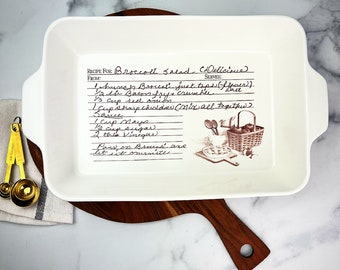 RECIPE FOR: Broccoli Salad (Delicious)
FROM: SERVES:
1 bunch Broccoli just tops (flowers)
1/2 lb Bacon fryer crumbled Drain
1/2 cup red onion
1 cup sharp cheddar (Mix all together)
Sauce
1 cup Mayo
1/2 cup sugar
2 tbls Vinegar
Pour on Broccoli and
let sit